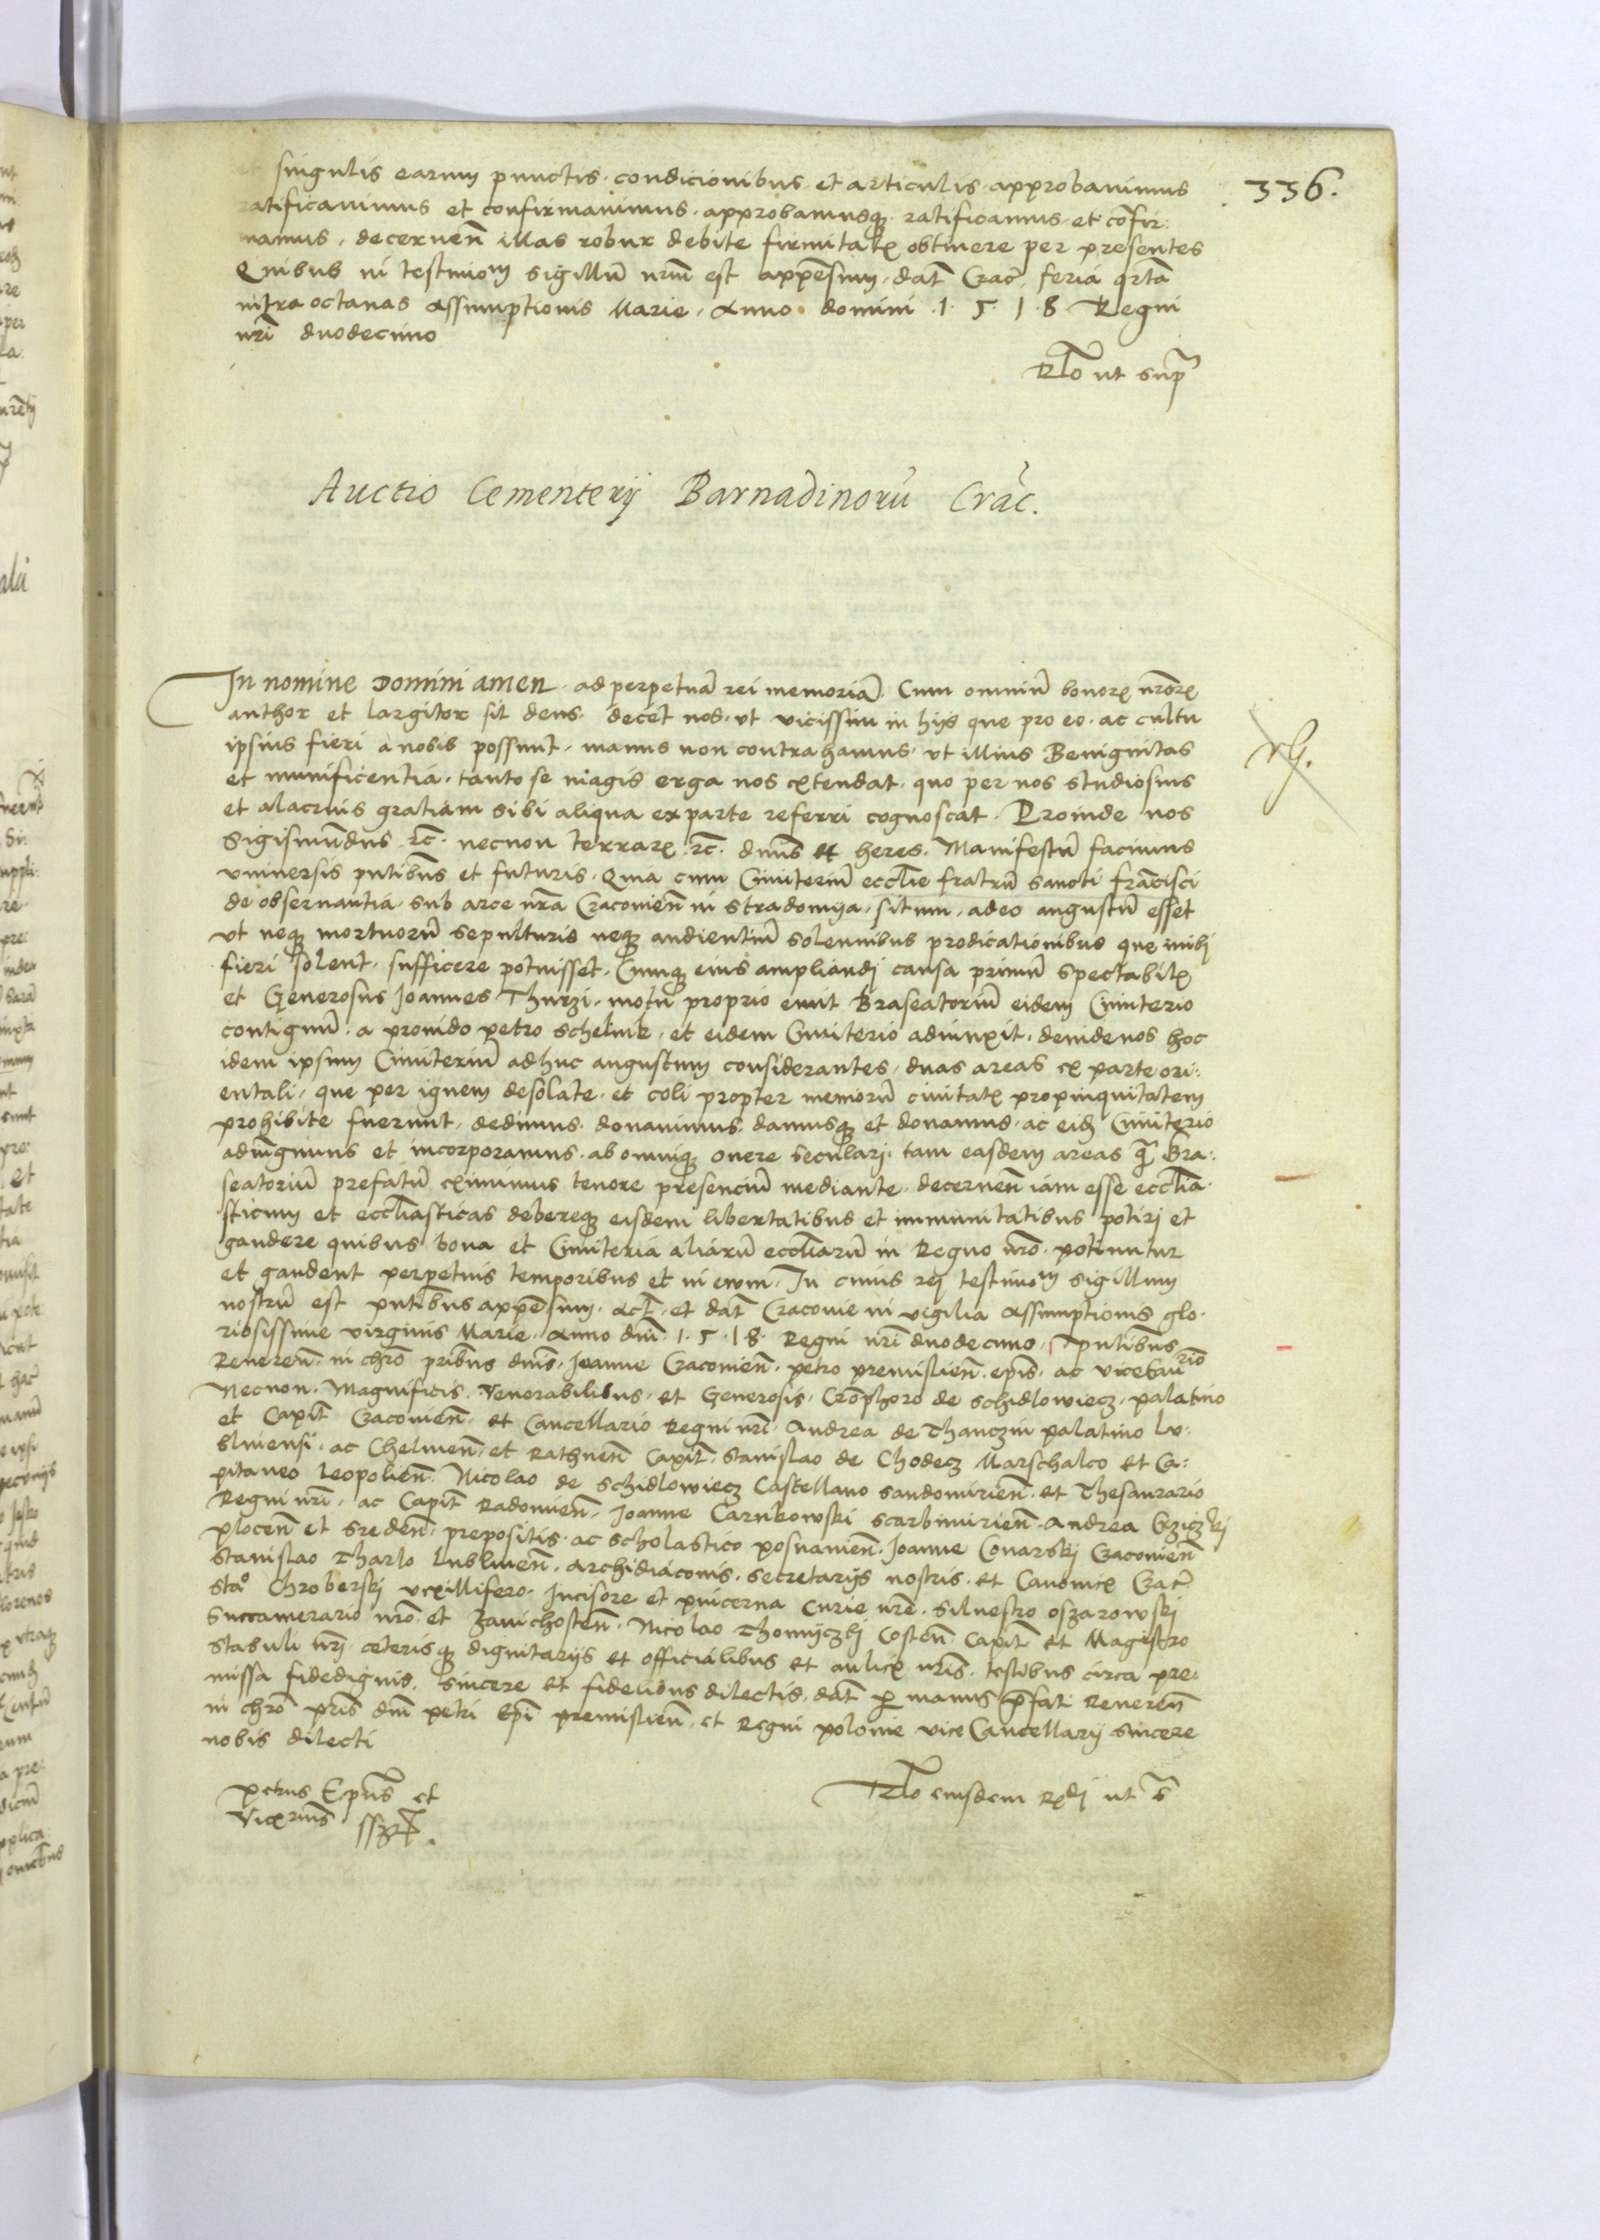 et singulis earum punctis condicionibus et articulis approbavimus
ratificavimus et confirmavimus approbamusq ratificamus et cōfir:
mamus, decernen̄ illas robur debite firmitatꝭ obtinere per presentes
Quibus in testimoᵐ sigillū nr̄m est appēsum, dat̄ Crac̄ feria qrta
infra octavas Assumptionis Marie, Anno domini 1518 Regni
nr̄i duodecimo
Rl̄o ut supᵃ
336.
Auctio Cementerij Barnadinorū Crac̄.
In nomine Domini amen ad perpetuā rei memoriā. Cum omniū bonorꝝ nr̄orꝝ
author et largitor sit deus. decet nos, ut vicissim in hijs que pro eo, ac cultu
ipsius fieri a nobis possunt, manus non contrahamus, ut illius Benignitas
et munificentia, tanto se magis erga nos extendat, quo per nos studiosius
et alacrius gratiam sibi aliqua ex parte referri cognoscat. Proinde nos
Sigismundus ꝛc̄. necnon terrarꝝ ꝛc̄. dn̄us et heres. Manifestū facimus
universis pn̄tibus et futuris. Quia cum Cimiteriū eccl̄ie fratrū sancti frācisci
de observantia, sub arce nr̄a Cracovien̄ in stradomya, situm, adeo angustū esset
ut neqꝫ mortuorū sepulturis neqꝫ audientiū solennibus predicationibus que inibj
fieri solent, sufficere potuisset, Cumqꝫ eius ampliandj causa primū spectabilꝭ
et Generosus Joannes Thurzi, motu proprio emit Braseatoriū eidem Cimiterio
contiguū, a provido petro schelink, et eidem Cimiterio adiunxit, deinde nos hoc
idem ipsum Cimiteriū adhuc angustum considerantes, duas areas ex parte ori:
entali, que per ignem desolate, et coli propter meniorū civitatꝭ propinquitatem
prohibite fuerunt, dedimus, donavimus, damusqꝫ et donamus, ac eidꝫ Cimiterio
adiūgimus et incorporamus, ab omniqꝫ onere seculari, tam easdem areas qᵃ Bra:
seatoriū prefatū eximimus tenore presenciū mediante, decernen̄ iam esse eccl̄ia
sticum et eccl̄iasticas debereqꝫ eisdem libertatibus et immunitatibus potiri et
gaudere quibus bona et Cimiteria aliarū eccl̄iarū in Regno nr̄o. potiuntur
et gaudent perpetuis temporibus et in evom. In cuius rej testimoᵐ sigillum
nostrū est pn̄tibus appēsum. Act̄ et dat̄ Cracovie in vigilia Assumptionis glo
riosissime virginis Marie. Anno dn̄i 1518. Regni nr̄i duodecimo, pn̄tibus
Reveren̄ in chr̄o prībus dn̄is, Joanne Cracovien̄. petro premislien̄ ep̄is, ac vicecanᵣⁱᵒ
Necnon. Magnificis, Venerabilibus, et Generosis, Cr̄ophoro de schidlowiecz, palatino
et Capit̄ Cracovien̄ et Cancellario Regni nr̄i. Andrea de Thanczin palatino Lu:
blinensi, ac Chelmen̄ et Rathnen̄ Capit̄. Stanislao de Chodecz Marschalco et Ca:
pitaneo Leopolien̄. Nicolao de schidlowiecz Castellano Sandomirien̄ et Thesaurario
Regni nr̄i, ac Capit̄ Radomien̄, Joanne Carnkowski scarbimirien̄. Andrea
plocen̄ et sreden̄ prepositis, ac scholastico posnanien̄. Joanne Conarskj Cracovien̄
Stanislao Tharlo Lublinen̄ Archidiaconis, secretarijs nostris, et Canonicꝭ Crac̄
Sta° Chroberskj vexillifero, Incisore et pincerna Curie nr̄e. Silvestro ozarowskj
Succamerario nr̄o et Zavichosten̄. Nicolao Thomyczkj Costen̄ Capit̄ et Magistro
stabuli nr̄j. ceterisqꝫ dignitarijs et officialibus et aulicꝭ nr̄is, testibus circa pre:
missa fidedignis, sincere et fidelibus dilectis. dat̄ ꝑ manus p̄fat Reveren̄
in chr̄o pr̄is dn̄i petri Ep̄i premislien̄, et Regni polonie vice Cancellarij sincere
nobis dilecti
petrus Ep̄us et
Vicerius sszpt.
Rl̄o eiusdem Rdj ut sᵃ